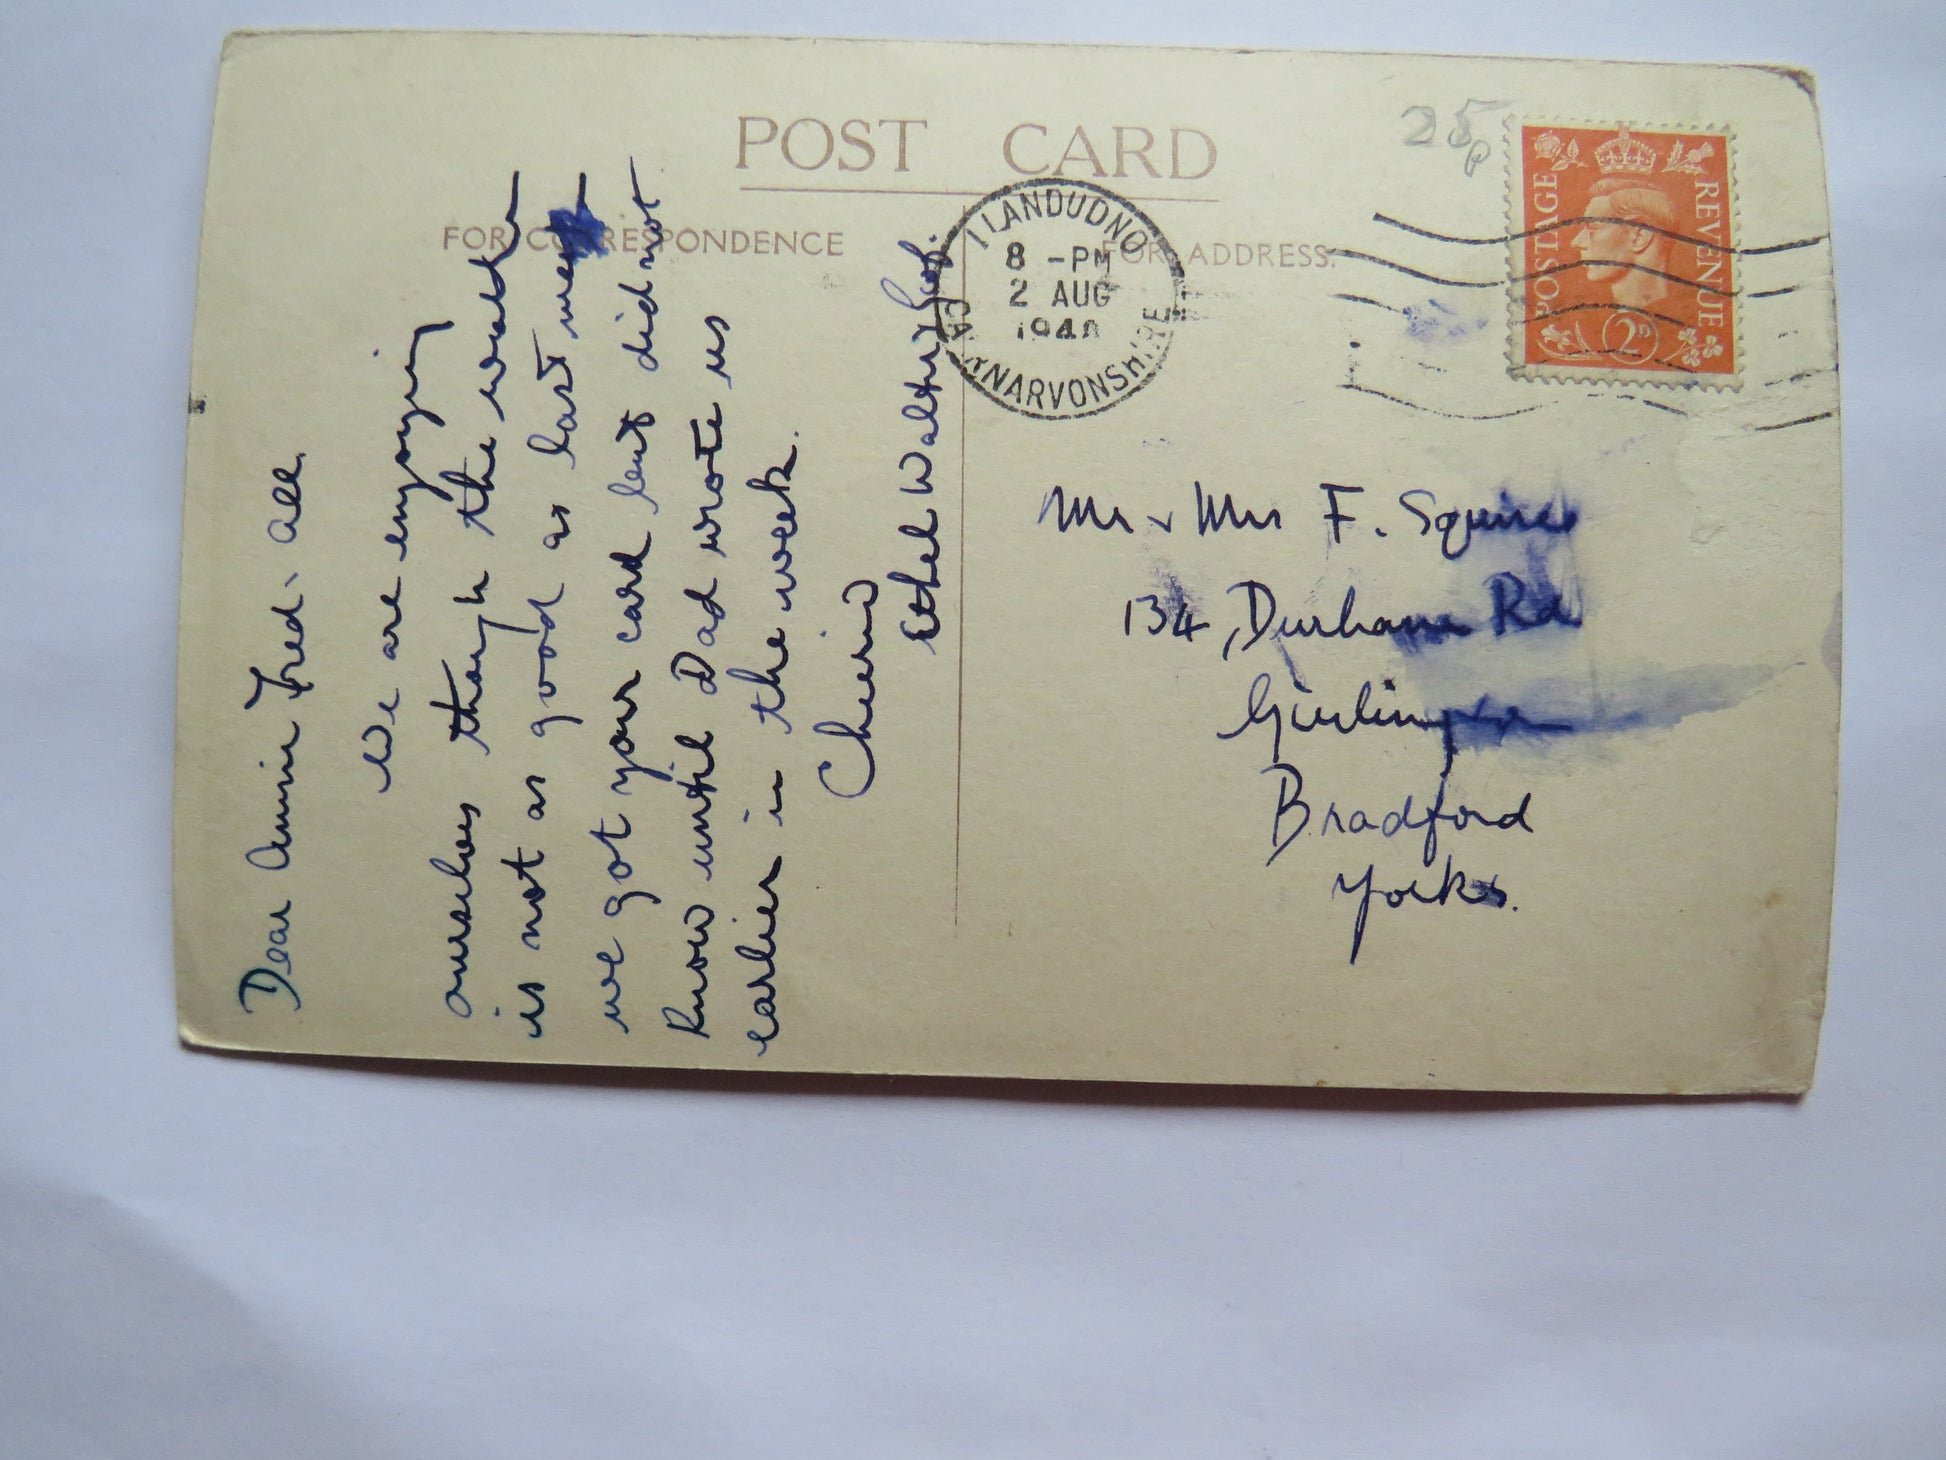 POST CARD
FOR CORRESPONDENCE
FOR ADDRESS.
25p
LLANDUDNO
8 -PM
2 AUG
CAERNARVONSHIRE
POSTAGE
REVENUE
2D
Dear Annie Fred. all.
We are enjoying
ourselves though the weather
is not as good as last
we got your card but did not
know until Dad wrote us
earlier in the week.
Cheerio
Ethel Walter
Mr & Mrs F. Squires
134, Durham Rd
Girlington
Bradford
Yorks.